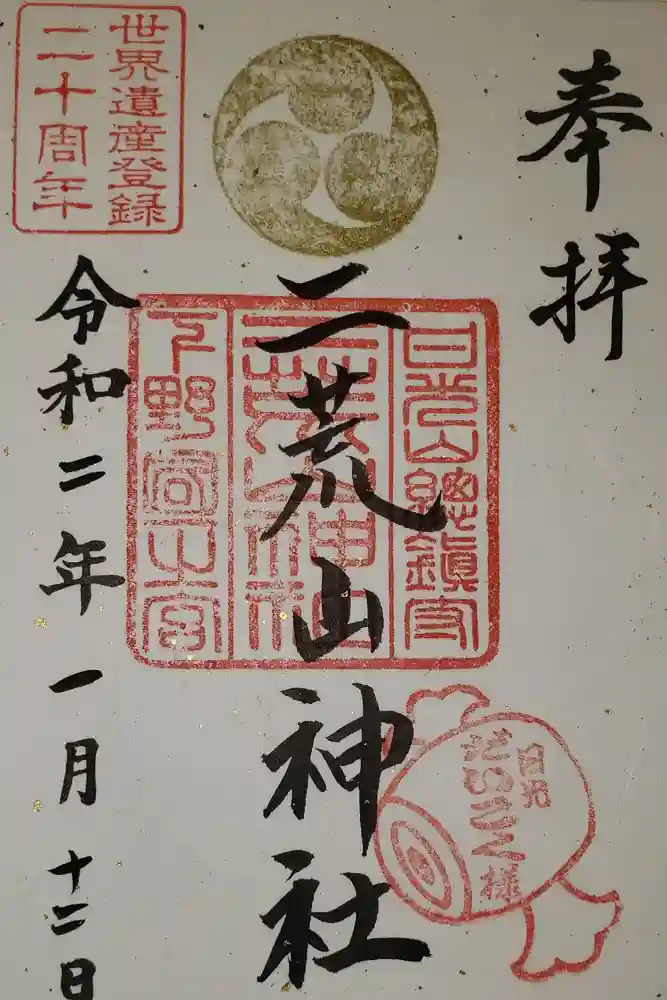 奉拝
日光山總鎮守
二荒山神社
下野国一之宮
二荒山神社
日光
だいこく様
令和二年一月十二日
世界遺産登録
二十周年